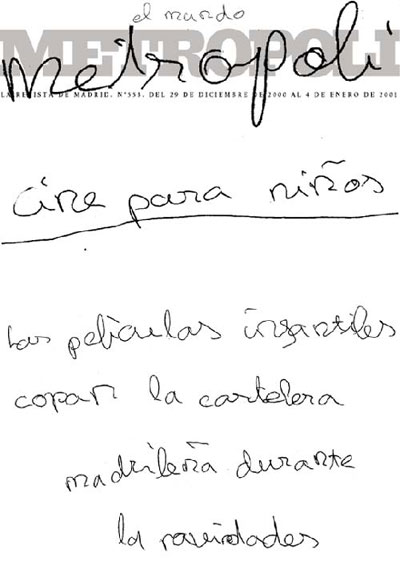 el mundo
METROPOLI
metropoli
LA REVISTA DE MADRID. Nº553. DEL 29 DE DICIEMBRE DE 2000 AL 4 DE ENERO DE 2001
cine para niños
Las películas infantiles
copan la cartelera
madrileña durante
la navidades